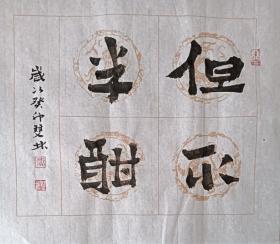 但不
半酣
歲次癸卯雙林